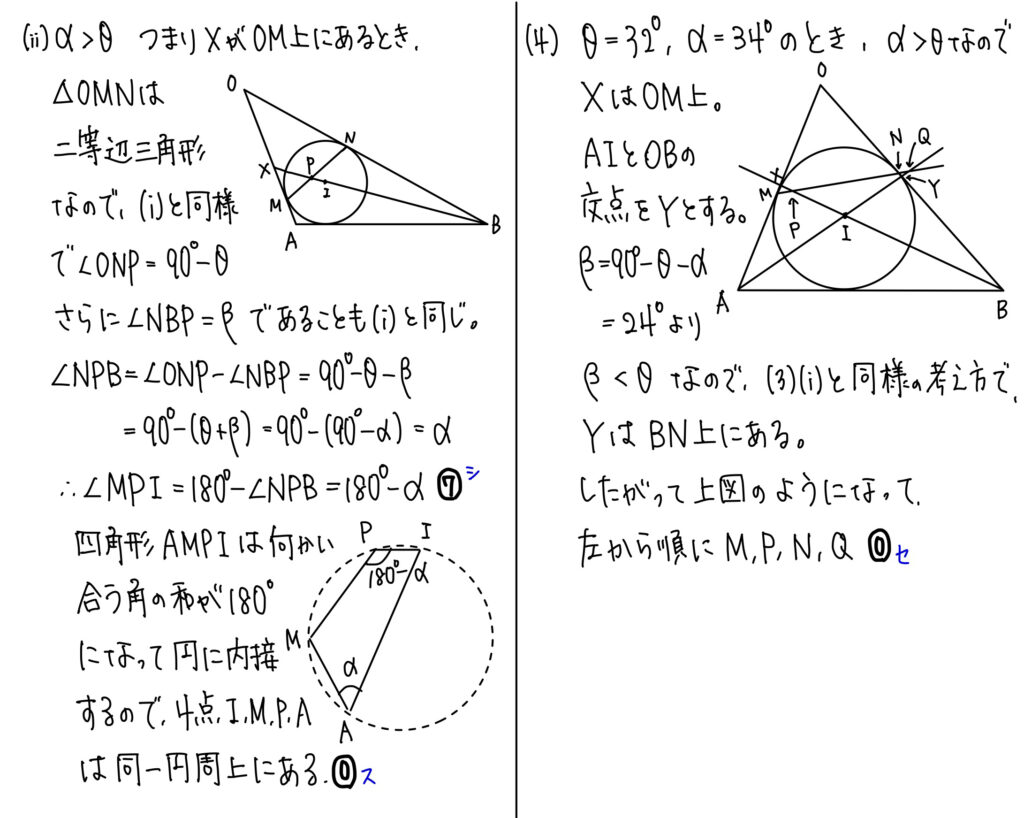 (ii) α > θ つまり XがOM上にあるとき、
△OMNは
二等辺三角形
なので、(i)と同様
で∠ONP = 90° - θ
さらに∠NBP = β であることも(i)と同じ。
∠NPB = ∠ONP - ∠NBP = 90° - θ - β
= 90° - (θ + β) = 90° - (90° - α) = α
∴ ∠MPI = 180° - ∠NPB = 180° - α ⑦ シ
四角形 AMPI は向かい
合う角の和が180°
になって円に内接
するので、4点 I, M, P, A
は同一円周上にある。⓪ ス
O
N
X
P
I
M
A
B
P
I
180° - α
M
α
A
(4) θ = 32°, α = 34° のとき、α > θ なので
XはOM上。
AIとOBの
交点をYとする。
β = 90° - θ - α
= 24° より
β < θ なので、(3)(i)と同様の考え方で、
YはBN上にある。
したがって上図のようになって、
左から順に M, P, N, Q ⓪ セ
O
N
Q
X
M
Y
P
I
A
B